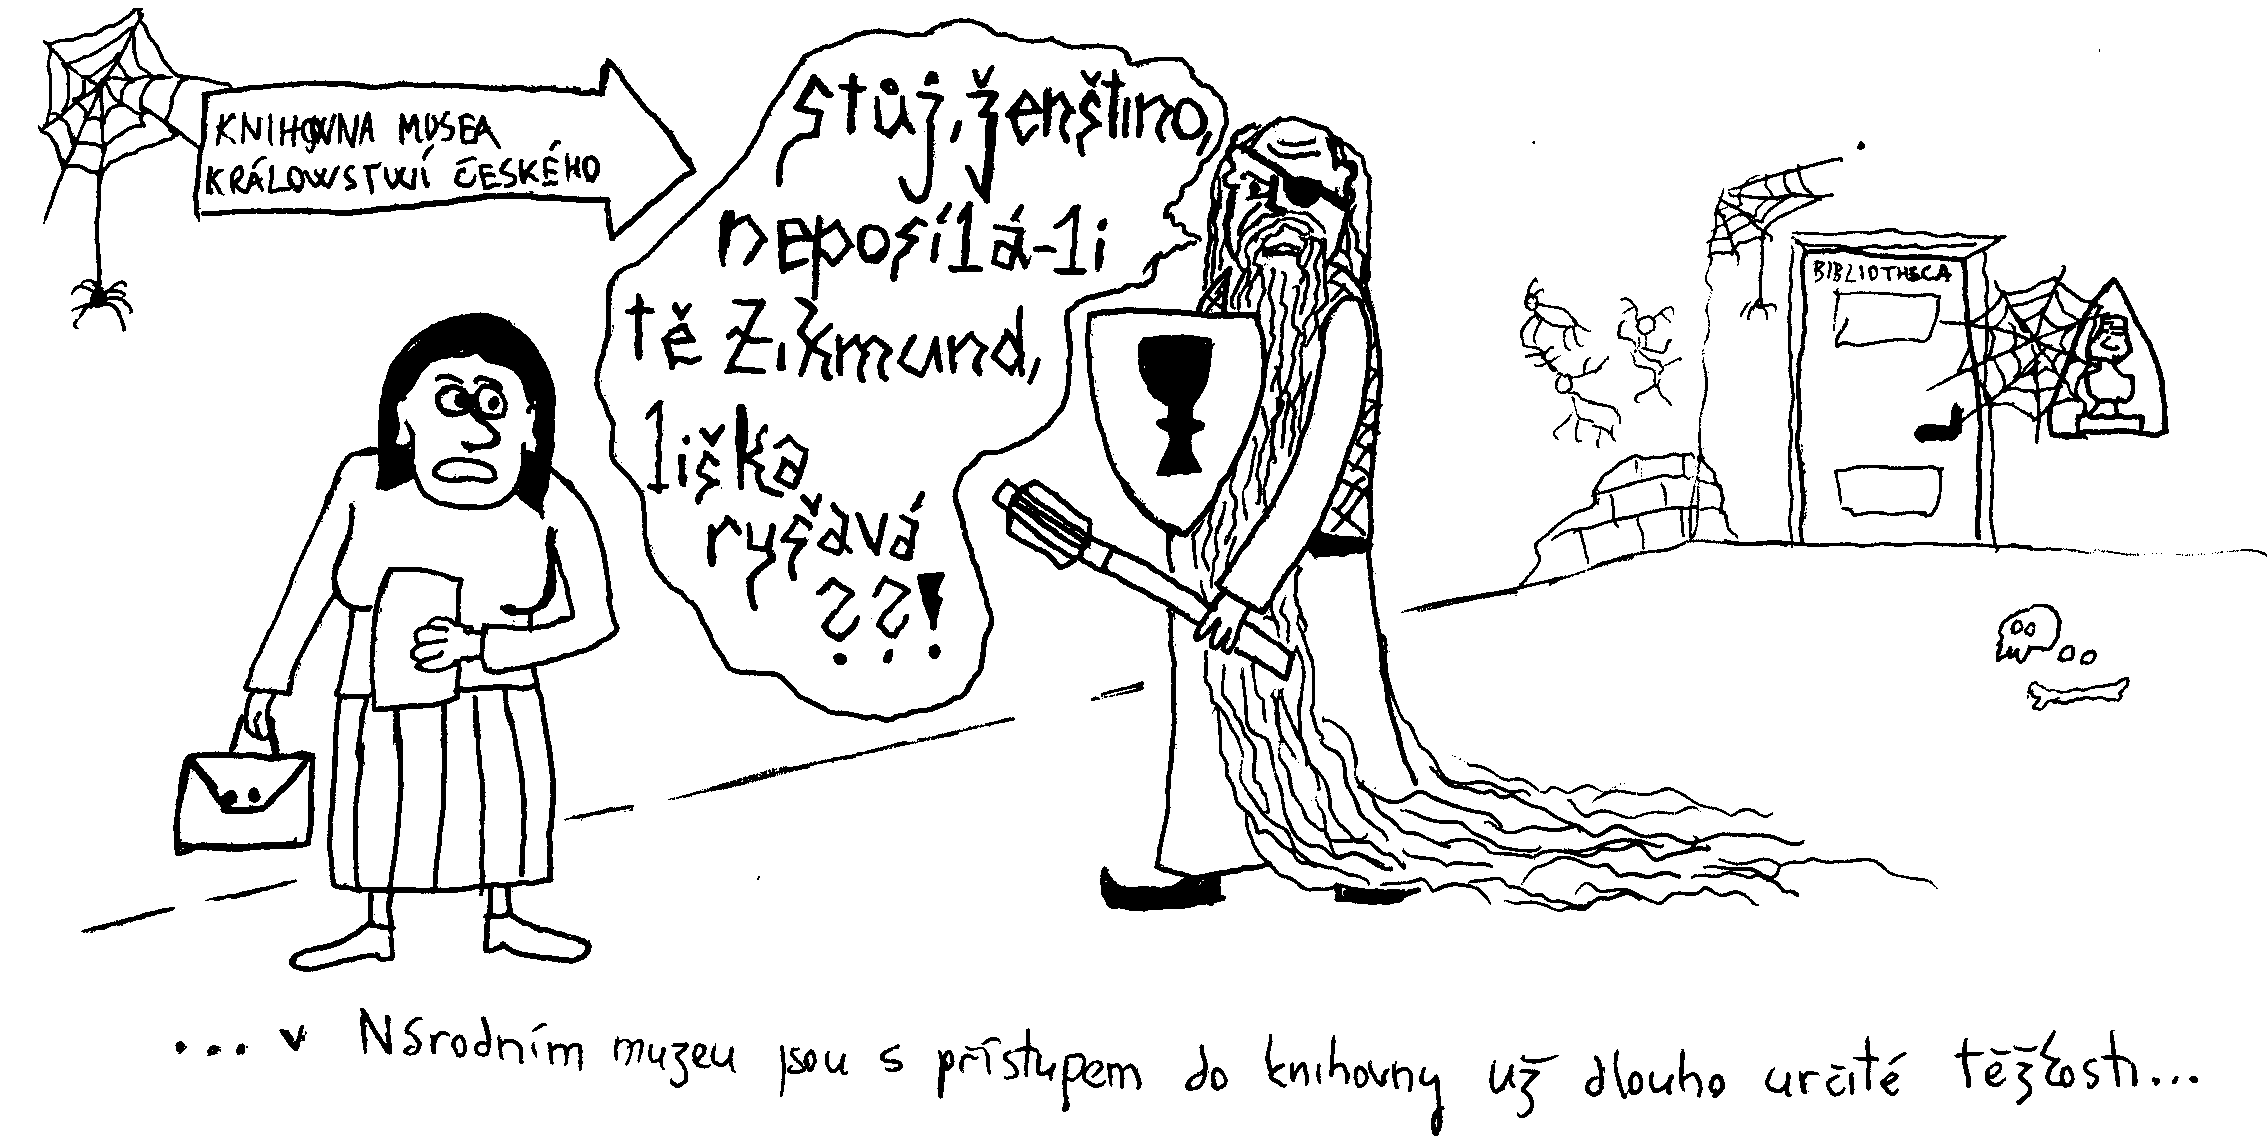 KNIHOVNA MUSEA
KRÁLOWSTWÍ ČESKÉHO
stůj, ženštino,
neposílá-li
tě Zikmund,
liška
ryšavá
??!
BIBLIOTHECA
... v Národním muzeu jsou s přístupem do knihovny už dlouho určité těžkosti...